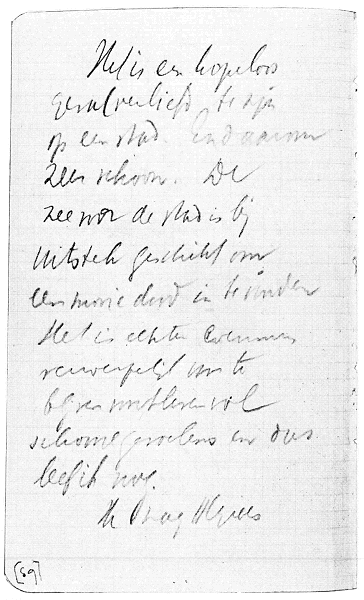 Het is een hopeloos
geval verliefd te zijn
op een stad. En daarom
zeer schoon. De
zee voor de stad is bij
uitstek geschikt om
een mooie dood in te vinden
Het is echter eveneens
om te
blijven vol
schone gevoelens en dus
leef ik nog.
[89]